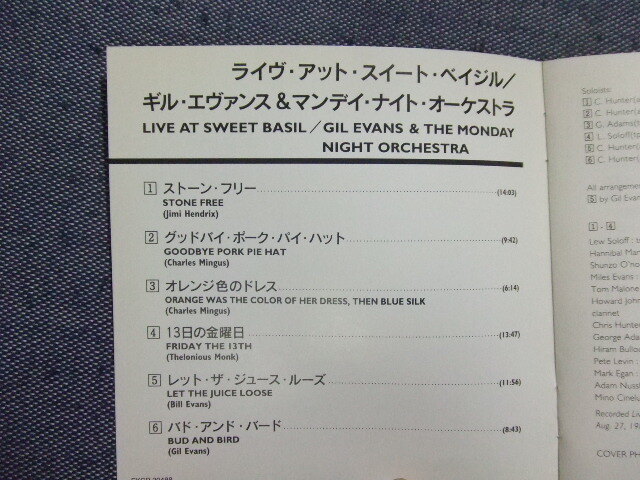 ライヴ・アット・スイート・ベイジル/
ギル・エヴァンス&マンデイ・ナイト・オーケストラ
LIVE AT SWEET BASIL/GIL EVANS & THE MONDAY
NIGHT ORCHESTRA
1 ストーン・フリー (14:03)
STONE FREE
(Jimi Hendrix)
2 グッドバイ・ポーク・パイ・ハット (9:42)
GOODBYE PORK PIE HAT
(Charles Mingus)
3 オレンジ色のドレス (6:14)
ORANGE WAS THE COLOR OF HER DRESS, THEN BLUE SILK
(Charles Mingus)
4 13日の金曜日 (13:47)
FRIDAY THE 13TH
(Thelonious Monk)
5 レット・ザ・ジュース・ルーズ (11:56)
LET THE JUICE LOOSE
(Bill Evans)
6 バド・アンド・バード (8:43)
BUD AND BIRD
(Gil Evans)
Soloists:
1 C. Hunter(
2 C. Hunter(
3 G. Adams(
4 L. Soloff(
5 C. Hunter(
6 C. Hunter(
All
5 by Gil
1 - 4
Lew Soloff :
Hannibal
Shunzo
Miles Evans :
Tom Malone
Howard
clarinet
Chris
George
Hiram
Pete Levin :
Mark Egan :
Adam
Mino
Recorded
Aug. 27,
COVER